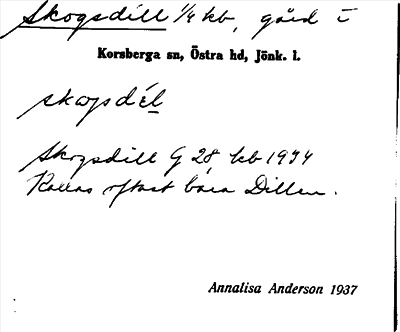 Skogsdill 1/4 kb, gård i
Korsberga sn, Östra hd, Jönk. l.
skogsdél
Skogsdill G 28 kb 1934
Kallas oftast bara Dillen.
Annalisa Anderson 1937